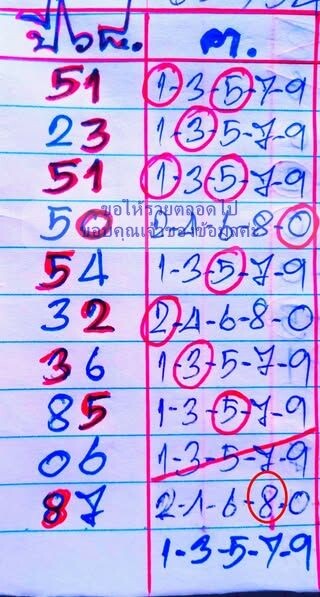 ปี๖๙. ต.
51 1-3-5-7-9
23 1-3-5-7-9
51 1-3-5-7-9
ขอให้รวยตลอดไป
50 8-0
ขอบคุณเจ้าของข้อมูลค่ะ
54 1-3-5-7-9
32 2-4-6-8-0
36 1-3-5-7-9
85 1-3-5-7-9
06 1-3-5-7-9
87 2-4-6-8-0
1-3-5-7-9